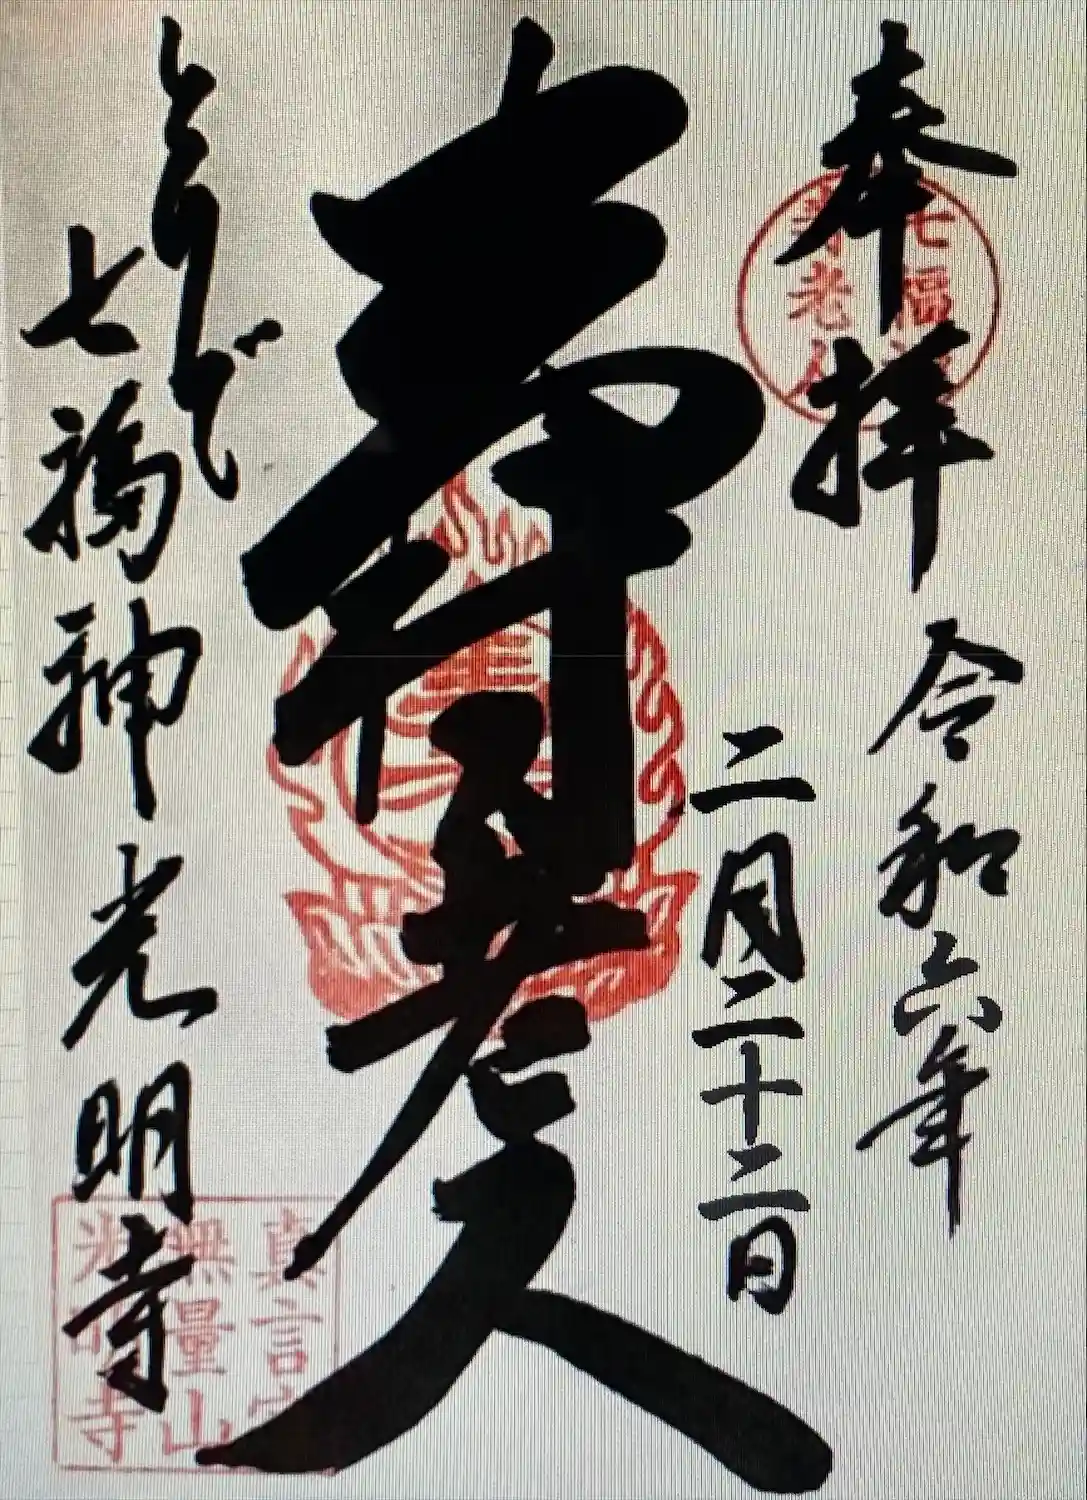 奉拝
令和六年
二月二十二日
寿老人
とりで
七福神光明寺
七福神
寿老人
真言宗
無量山
光明寺